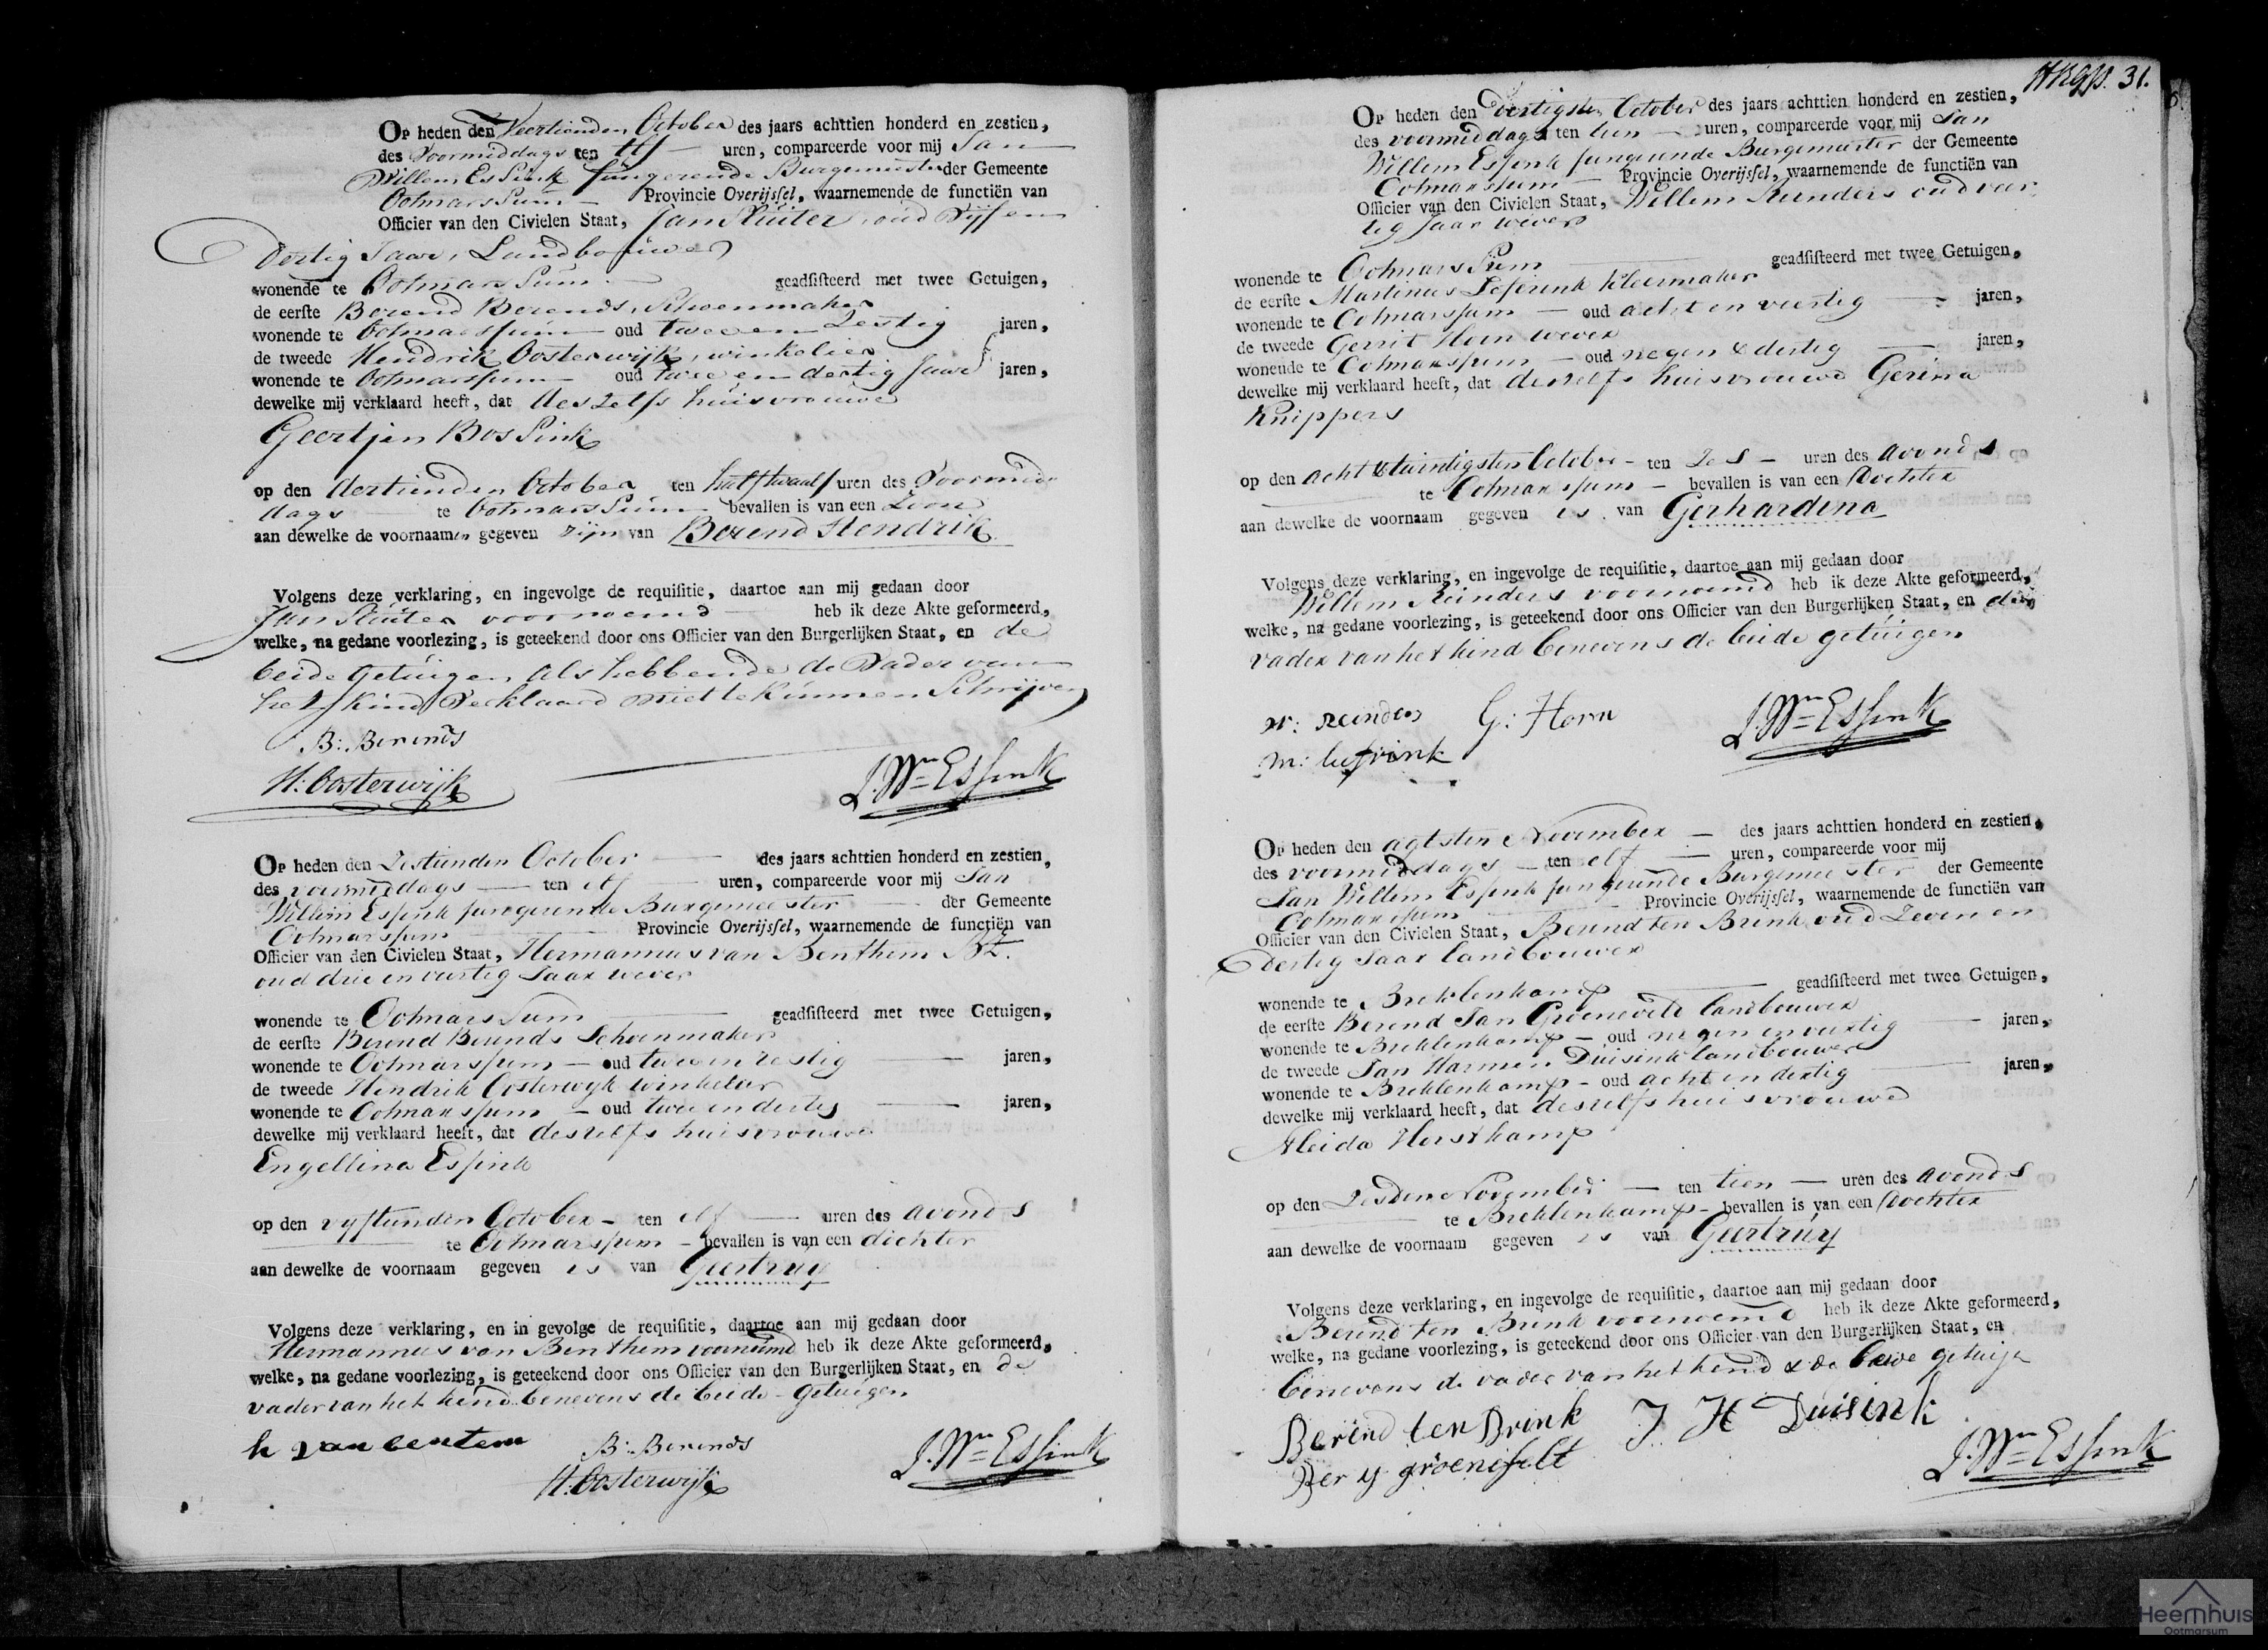 Op heden den Veertienden October des jaars achttien honderd en zestien,
des Voormiddags ten Elf uren, compareerde voor mij Jan
Willem Essink fungerende Burgemeester der Gemeente
OotmarsSum Provincie Overijssel, waarnemende de functiën van
Officier van den Civielen Staat, Jan Sluiter, oud Vijf en
Dertig Jaar, Landbouwer
wonende te OotmarsSum geadsisteerd met twee Getuigen,
de eerste Berend Berends, Schoenmaker
wonende te Ootmarssum oud twee en Zestig jaren,
de tweede Hendrik Oosterwijk, winkelier
wonende te Ootmarssum oud twee en dertig Jaar jaren,
dewelke mij verklaard heeft, dat deszelfs huisvrouwe
Geertjen BosSink
op den dertienden October ten half twaalf uren des Voormid
dags te OotmarsSum bevallen is van een Zoon
aan dewelke de voornaamen gegeven zijn van Berend Hendrik
Volgens deze verklaring, en ingevolge de requisitie, daartoe aan mij gedaan door
Jan Sluiter voornoemd heb ik deze Akte geformeerd,
welke, na gedane voorlezing, is geteekend door ons Officier van den Burgerlijken Staat, en de
beide getuigen als hebbende de Vader van
het kind Verklaard niet te kunnen Schrijven
B: Berends
H: Oosterwijk
J. Wm Essink
Op heden den Zestienden October des jaars achttien honderd en zestien,
des voormiddags ten elf uren, compareerde voor mij Jan
Willem Essink fungerende Burgemeester der Gemeente
Ootmarssum Provincie Overijssel, waarnemende de functiën van
Officier van den Civielen Staat, Hermannus van Benthem BZ.
oud drie en veertig Jaar wever
wonende te OotmarsSum geadsisteerd met twee Getuigen,
de eerste Berend Berends Schoenmaker
wonende te Ootmarssum oud twee en zestig jaren,
de tweede Hendrik Oosterwyk winkelier
wonende te Ootmarssum oud twee en dertig jaren,
dewelke mij verklaard heeft, dat deszelfs huisvrouwe
Engellina Essink
op den vyftienden October ten elf uren des avonds
te Ootmarssum bevallen is van een dochter
aan dewelke de voornaam gegeven is van Geertruy
Volgens deze verklaring, en in gevolge de requisitie, daartoe aan mij gedaan door
Hermannus van Benthem voornoemd heb ik deze Akte geformeerd,
welke, na gedane voorlezing, is geteekend door ons Officier van den Burgerlijken Staat, en de
vader van het kind benevens de beide getuigen
h van bentem
B: Berends
H: Oosterwijk
J. Wm Essink
31.
Op heden den dertigsten October des jaars achttien honderd en zestien,
des voormiddags ten tien uren, compareerde voor mij Jan
Willem Essink fungerende Burgemeester der Gemeente
Ootmarssum Provincie Overijssel, waarnemende de functiën van
Officier van den Civielen Staat, Willem Reinders oud veer
tig Jaar wever
wonende te OotmarsSum geadsisteerd met twee Getuigen,
de eerste Martinus Leferink kleermaker
wonende te Ootmarssum oud acht en veertig jaren,
de tweede Gerrit Horn wever
wonende te Ootmarssum oud negen & dertig jaren,
dewelke mij verklaard heeft, dat deszelfs huisvrouwe Gerina
Knippers
op den acht & twintigsten October ten Zes uren des avonds
te Ootmarssum bevallen is van een Dochter
aan dewelke de voornaam gegeven is van Gerhardina
Volgens deze verklaring, en ingevolge de requisitie, daartoe aan mij gedaan door
Willem Reinders voornoemd heb ik deze Akte geformeerd,
welke, na gedane voorlezing, is geteekend door ons Officier van den Burgerlijken Staat, en de
vader van het kind benevens de beide getuigen
w: Reinders
G: Horn
m: lefrink
J. Wm Essink
Op heden den agtsten November des jaars achttien honderd en zestien,
des voormiddags ten elf uren, compareerde voor mij
Jan Willem Essink fungerende Burgemeester der Gemeente
Ootmarssum Provincie Overijssel, waarnemende de functiën van
Officier van den Civielen Staat, Berend ten Brink oud Zeven en
dertig Jaar landbouwer
wonende te Breklenkamp geadsisteerd met twee Getuigen,
de eerste Berend Jan Groeneveld landbouwer
wonende te Breklenkamp oud negen en veertig jaren,
de tweede Jan Harmen Duisink landbouwer
wonende te Breklenkamp oud acht en dertig jaren,
dewelke mij verklaard heeft, dat deszelfs huisvrouwe
Aleida Horstkamp
op den Zesden November ten tien uren des avonds
te Breklenkamp bevallen is van een Dochter
aan dewelke de voornaam gegeven is van Geertruy
Volgens deze verklaring, en ingevolge de requisitie, daartoe aan mij gedaan door
Berend ten Brink voornoemd heb ik deze Akte geformeerd,
welke, na gedane voorlezing, is geteekend door ons Officier van den Burgerlijken Staat, en
benevens de vader van het kend & de getuige
Berend ten Brink
J H Duisink
Ber y groenefelt
J. Wm Essink
Heemhuis
Ootmarsum